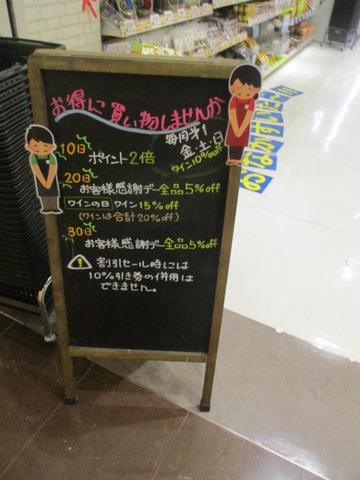 お得に買い物しませんか
毎月第1
金・土・日
ワイン10%off
10日
ポイント2倍
20日
お客様感謝デー全品5%off
ワインの日 ワイン15%off
(ワインは合計20%off)
30日
お客様感謝デー全品5%off
割引セール時には
10%引き券の併用は
できません。